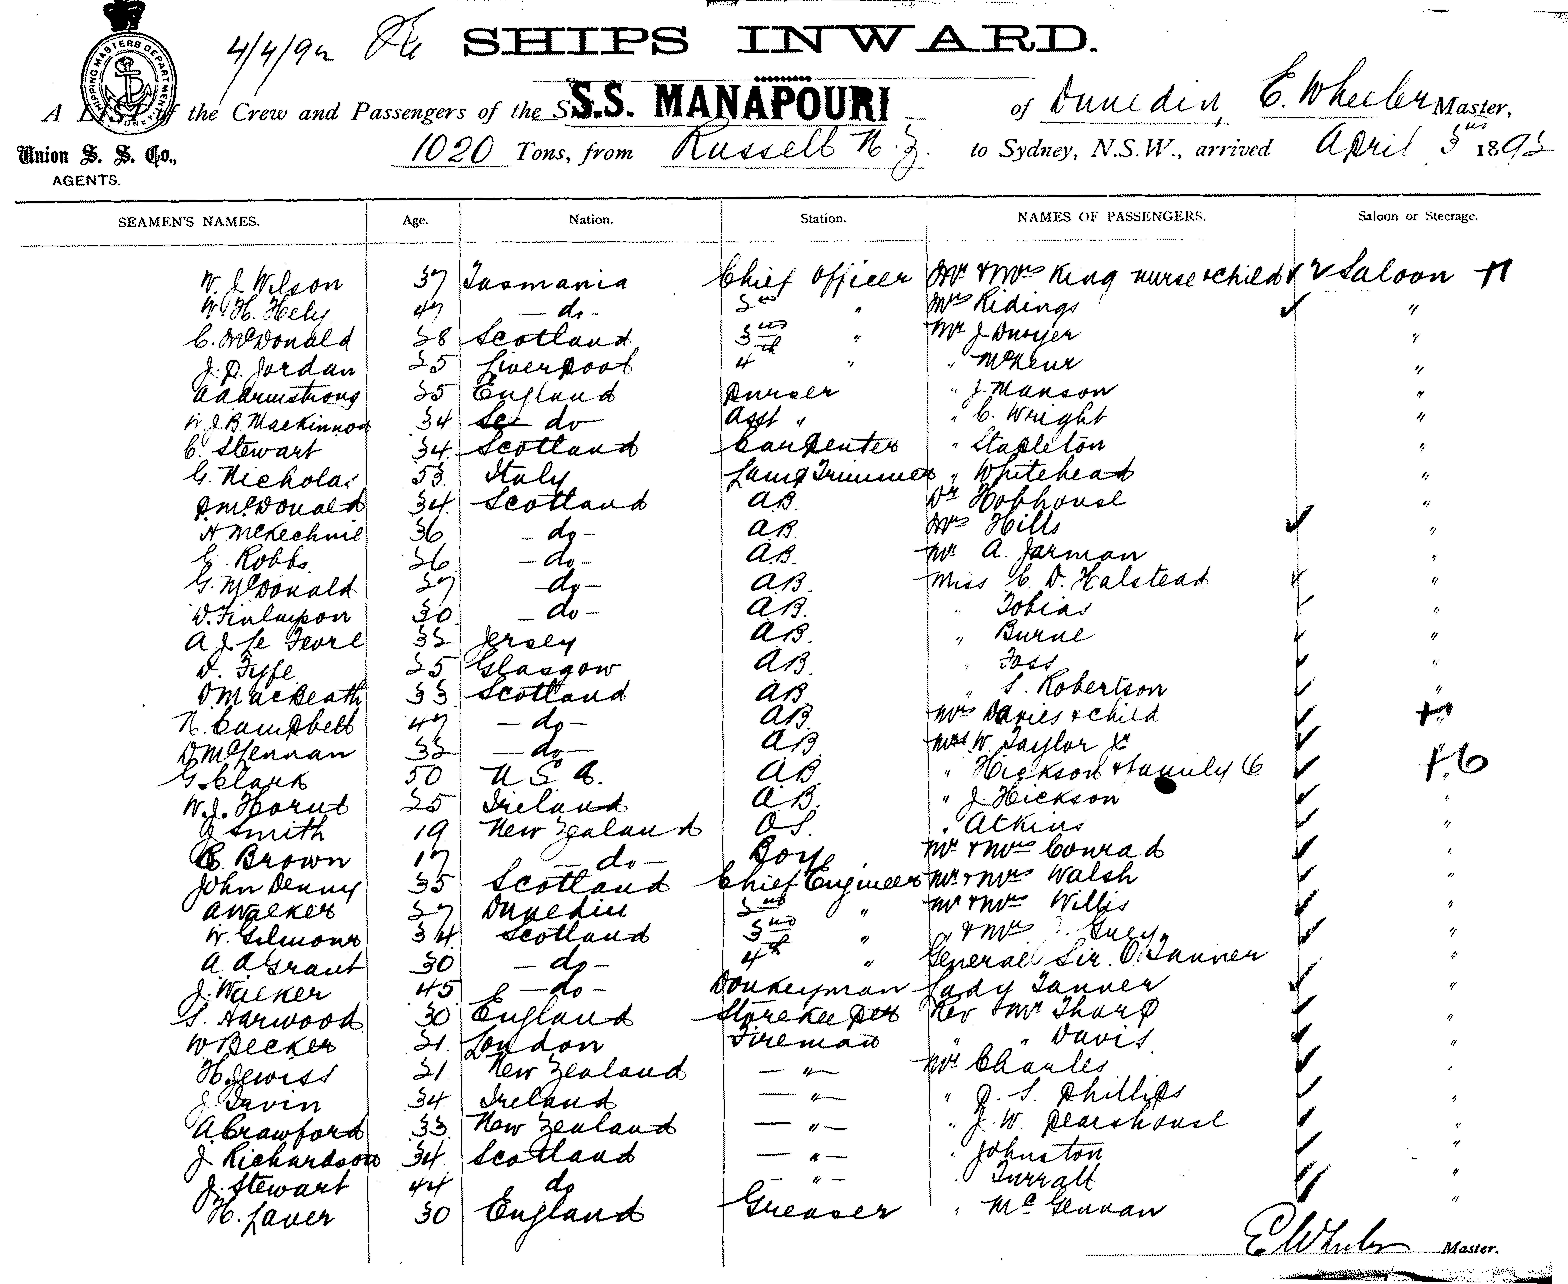 4/4/92 SHIPS INWARD.
SHIPPING MASTERS DEPARTMENT
A LIST of the Crew and Passengers of the S.S. MANAPOURI of Dunedin, E. Wheeler Master,
Union S. S. Co., AGENTS.
1020 Tons, from Russell N. Z. to Sydney, N.S.W., arrived April 1892
SEAMEN'S NAMES. Age. Nation. Station. NAMES OF PASSENGERS. Saloon or Steerage.
W. J. Wilson 37 Tasmania Chief Officer Mr & Mrs King nurse & child Saloon
W. H. Hely 47 — do - 2nd " Mrs Ridings "
C. McDonald 28 Scotland 3rd " Mr J Dwyer "
J. P. Jordan 25 Liverpool 4th " " "
A Armstrong 25 England Purser " J. Manson "
W. J. B. Mackinnon 34 do Asst " " C. Wright "
C. Stewart 34 Scotland Carpenter " Stapleton "
G. Nicholas 53 Italy Lamp Trimmer " Whitehead "
D. McDonald 34 Scotland A.B. Dr Hobhouse "
A McKechnie 36 - do - A.B. Mrs Hills "
E. Robbs 26 - do - A.B. Mr A. Jarman "
G. McDonald 27 do - A.B. Miss E. D. Halstead "
D. Finlayson 30 - do - A.B. " Tobias "
A J. Le Fevre 32 Jersey A.B. " Burne "
D. Fyfe 25 Glasgow A.B. " Foss "
D MacBeath 33 Scotland A.B. " S. Robertson "
N. Campbell 47 - do - A.B. Mrs Davies & child
D McLennan 32 - do - A.B. Mrs W. Taylor
G. Clark 50 U S A. A.B. " Hickson & family 6
W. J. 25 Ireland A.B. " J Hickson "
J Smith 19 New Zealand O.S. " Atkins "
Brown 17 do — Boy Mr & Mrs Conrad "
John Denny 35 Scotland Chief Engineer Mr & Mrs Walsh "
A Walker 27 Dunedin 2nd " Mr & Mrs Willis "
W. Gilmour 34 Scotland 3rd " " & Mrs Grey "
A. A Grant 30 - do - 4th " General Sir. O. Tanner "
J. Walker 45 — do - Donkeyman Lady Tanner "
S. Harwood 30 England Storekeeper Rev & Mr Tharp "
W Becker 21 London Fireman " " Davis "
H. Jewiss 21 New Zealand — " — Mr Charles "
J. Gavin 34 Ireland — " — " J. S. Phillips
A. Crawford 33 New Zealand — " — " J. W. Pearshouse "
J. Richardson 34 Scotland — " — " Johnston "
J. Stewart 44 do — " — " Turrall "
H. Laver 30 England Greaser " "
E Wheeler Master.